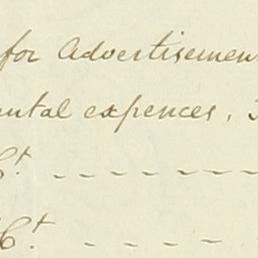 for Advertisemen
ental expences,
Ct. -- -- -- -- --
Ct. -- -- -- --